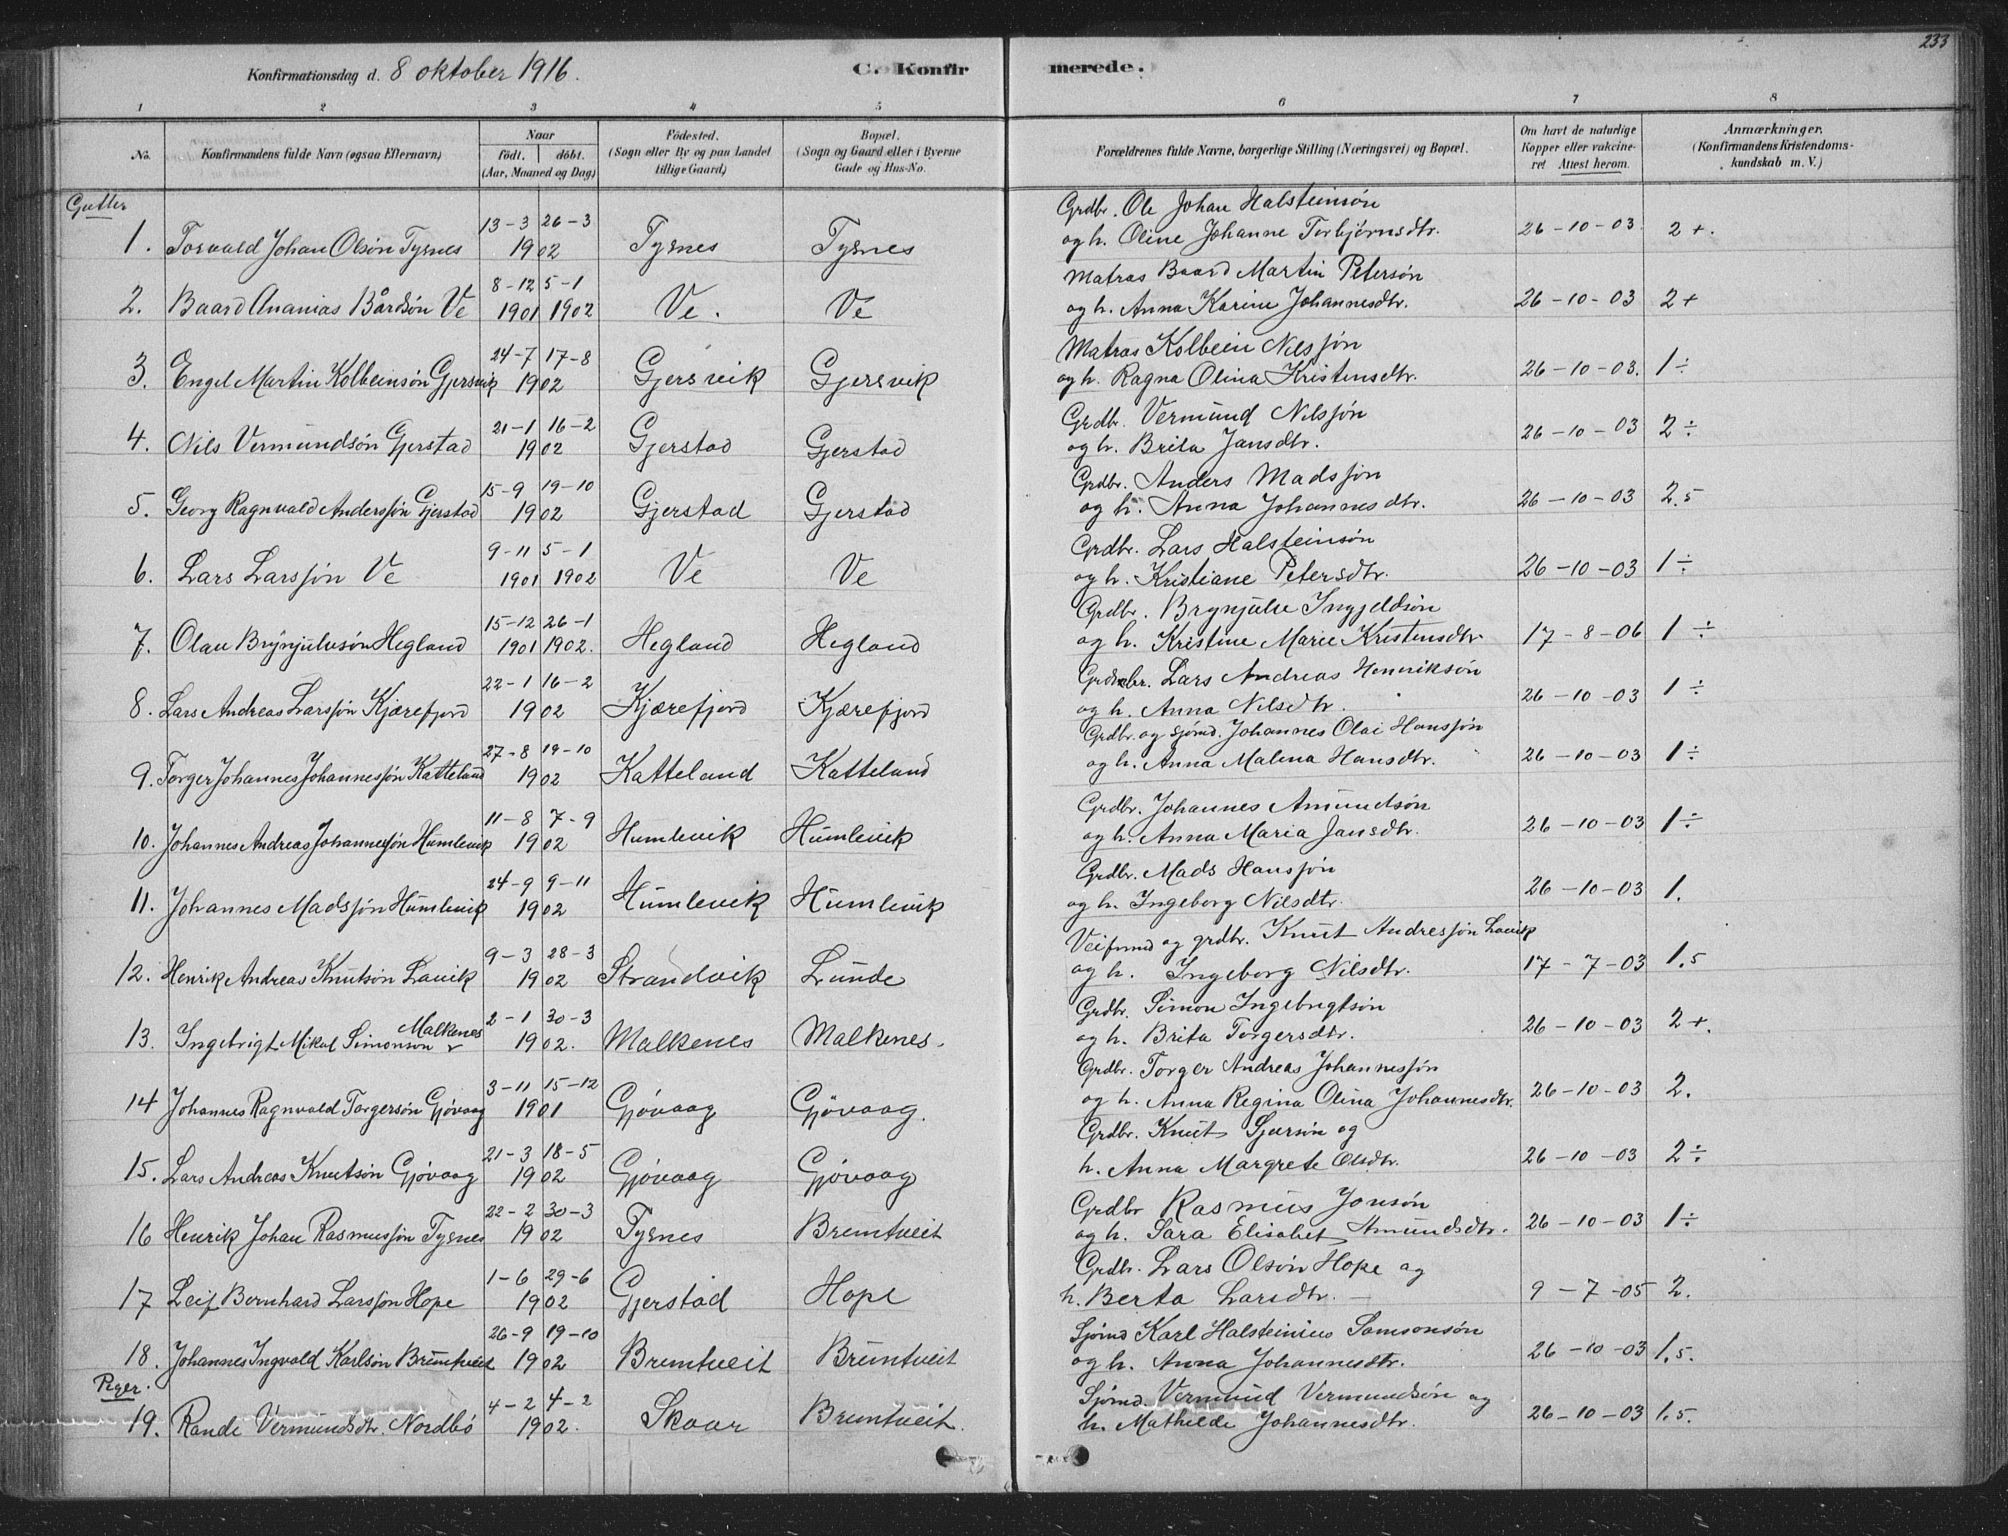 233
Konfirmationsdag d. 8 oktober 1916.
C. Konfirmerede.
1 2 3 4 5 6 7 8
No.
Konfirmandens fulde Navn (ogsaa Efternavn)
Naar
födt. | döbt.
(Aar, Maaned og Dag)
Födested.
(Sogn eller By og paa Landet
tillige Gaard)
Bopæl.
(Sogn og Gaard eller i Byerne
Gade og Hus-No.
Forældrenes fulde Navne, borgerlige Stilling (Næringsvei) og Bopæl.
Om havt de naturlige
Kopper eller vakcine-
ret Attest herom.
Anmærkninger.
(Konfirmandens Kristendoms-
kundskab m. V.)
Gutter
13-3 26-3 Grdbr. Ole Johan Halsteinsön
1. Torvald Johan Olsön Tysnes 1902 Tysnes Tysnes og h. Oline Johanne Torbjörnsdtr. 26-10-03. 2+.
8-12 5-1 Matras Baard Martin Petersön
2. Baard Ananias Bårdsön Ve 1901 1902 Ve. Ve og h. Anna Karine Johannesdtr. 26-10-03 2+
24-7 17-8 Matras Kolbein Nilssön
3. Engel Martin Kolbeinsön Gjersvik 1902 Gjersvik Gjersvik og h. Ragna Olina Kristensdtr. 26-10-03. 1÷
21-1 16-2 Grdbr. Vermund Nilssön
4. Nils Vermundsön Gjerstad 1902 Gjerstad Gjerstad og h. Brita Jansdtr. 26-10-03 2÷
15-9 19-10 Grdbr. Anders Madssön
5. Georg Ragnvald Anderssön Gjerstad 1902 Gjerstad Gjerstad og h. Anna Johannesdtr. 26-10-03 2.5
9-11 5-1 Grdbr. Lars Halsteinsön
6. Lars Larssön Ve 1901 1902 Ve Ve og h. Kristiane Petersdtr. 26-10-03 1÷
15-12 26-1 Grdbr. Brynjulv Ingjeldsön
7. Olau Brynjulvsön Hegland 1901 1902. Hegland Hegland og h. Kristine Marie Kristensdtr. 17-8-06 1÷
22-1 16-2 Lars Andreas Henriksön
8. Lars Andreas Larssön Kjærefjord 1902 Kjærefjord Kjærefjord og h. Anna Nilsdtr. 26-10-03 1÷
27-8 19-10 Grdbr. og sjömd. Johannes Olai Hanssön
9. Torger Johannes Johannessön Katteland 1902 Katteland Katteland og h. Anna Malena Hansdtr. 26-10-03 1÷
11-8 7-9 Grdbr. Johannes Amundsön
10. Johannes Andreas Johannessön Humlevik 1902 Humlevik Humlevik og h. Anna Maria Jansdtr. 26-10-03 1÷
24-9 9-11 Grdbr. Mads Hanssön
11. Johannes Madssön Humlevik 1902 Humlevik Humlevik og h. Ingeborg Nilsdtr. 26-10-03 1.
9-3 28-3 og grdbr. Knut Andressön Lauik
12. Henrik Andreas Knutsön Lauik 1902 Strandvik Lunde og h. Ingeborg Nilsdtr. 17-7-03 1.5
2-1 30-3 Grdbr. Simon Ingebrigtsön
13. Ingebrigt Mikal Simonson Malkenes 1902. Malkenes Malkenes. og h. Brita Torgersdtr. 26-10-03 2+.
3-11 15-12 Grdbr. Torger Andreas Johannessön
14 Johannes Ragnvald Torgersön Gjövaag 1901 Gjövaag Gjövaag. og h. Anna Regina Olina Johannesdtr. 26-10-03 2.
21-3 18-5 Grdbr. Knut Sjursön og
15. Lars Andreas Knutsön Gjövaag 1902 Gjövaag Gjövaag h. Anna Margrete Olsdtr. 26-10-03 2÷
22-2 30-3 Grdbr Rasmus Jonsön
16 Henrik Johan Rasmussön Tysnes 1902 Tysnes Bruntveit og h. Sara Elisabet Amundsdtr. 26-10-03 1÷
1-6 29-6 Grdbr. Lars Olsön Hope og
17 Leif Bernhard Larssön Hope 1902 Gjerstad Hope h. Berta Larsdtr. 9-7-05 2.
26-9 19-10 Sjömd Karl Halsteinius Samsonsön
18. Johannes Ingvald Karlsön Bruntveit 1902 Bruntveit Bruntveit og h. Anna Johannesdtr. 26-10-03 1.5.
Piger.
4-2 4-2 Sjömd. Vermund Vermundsön og
19. Rande Vermundsdtr. Nordbö 1902. Skaar Bruntveit. h. Mathilde Johannesdtr. 26-10-03 1.5.